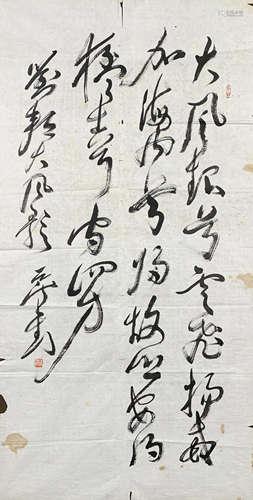 大風起兮雲飛揚威
加海內兮歸故鄉安得
猛士兮守四方
劉邦大風歌